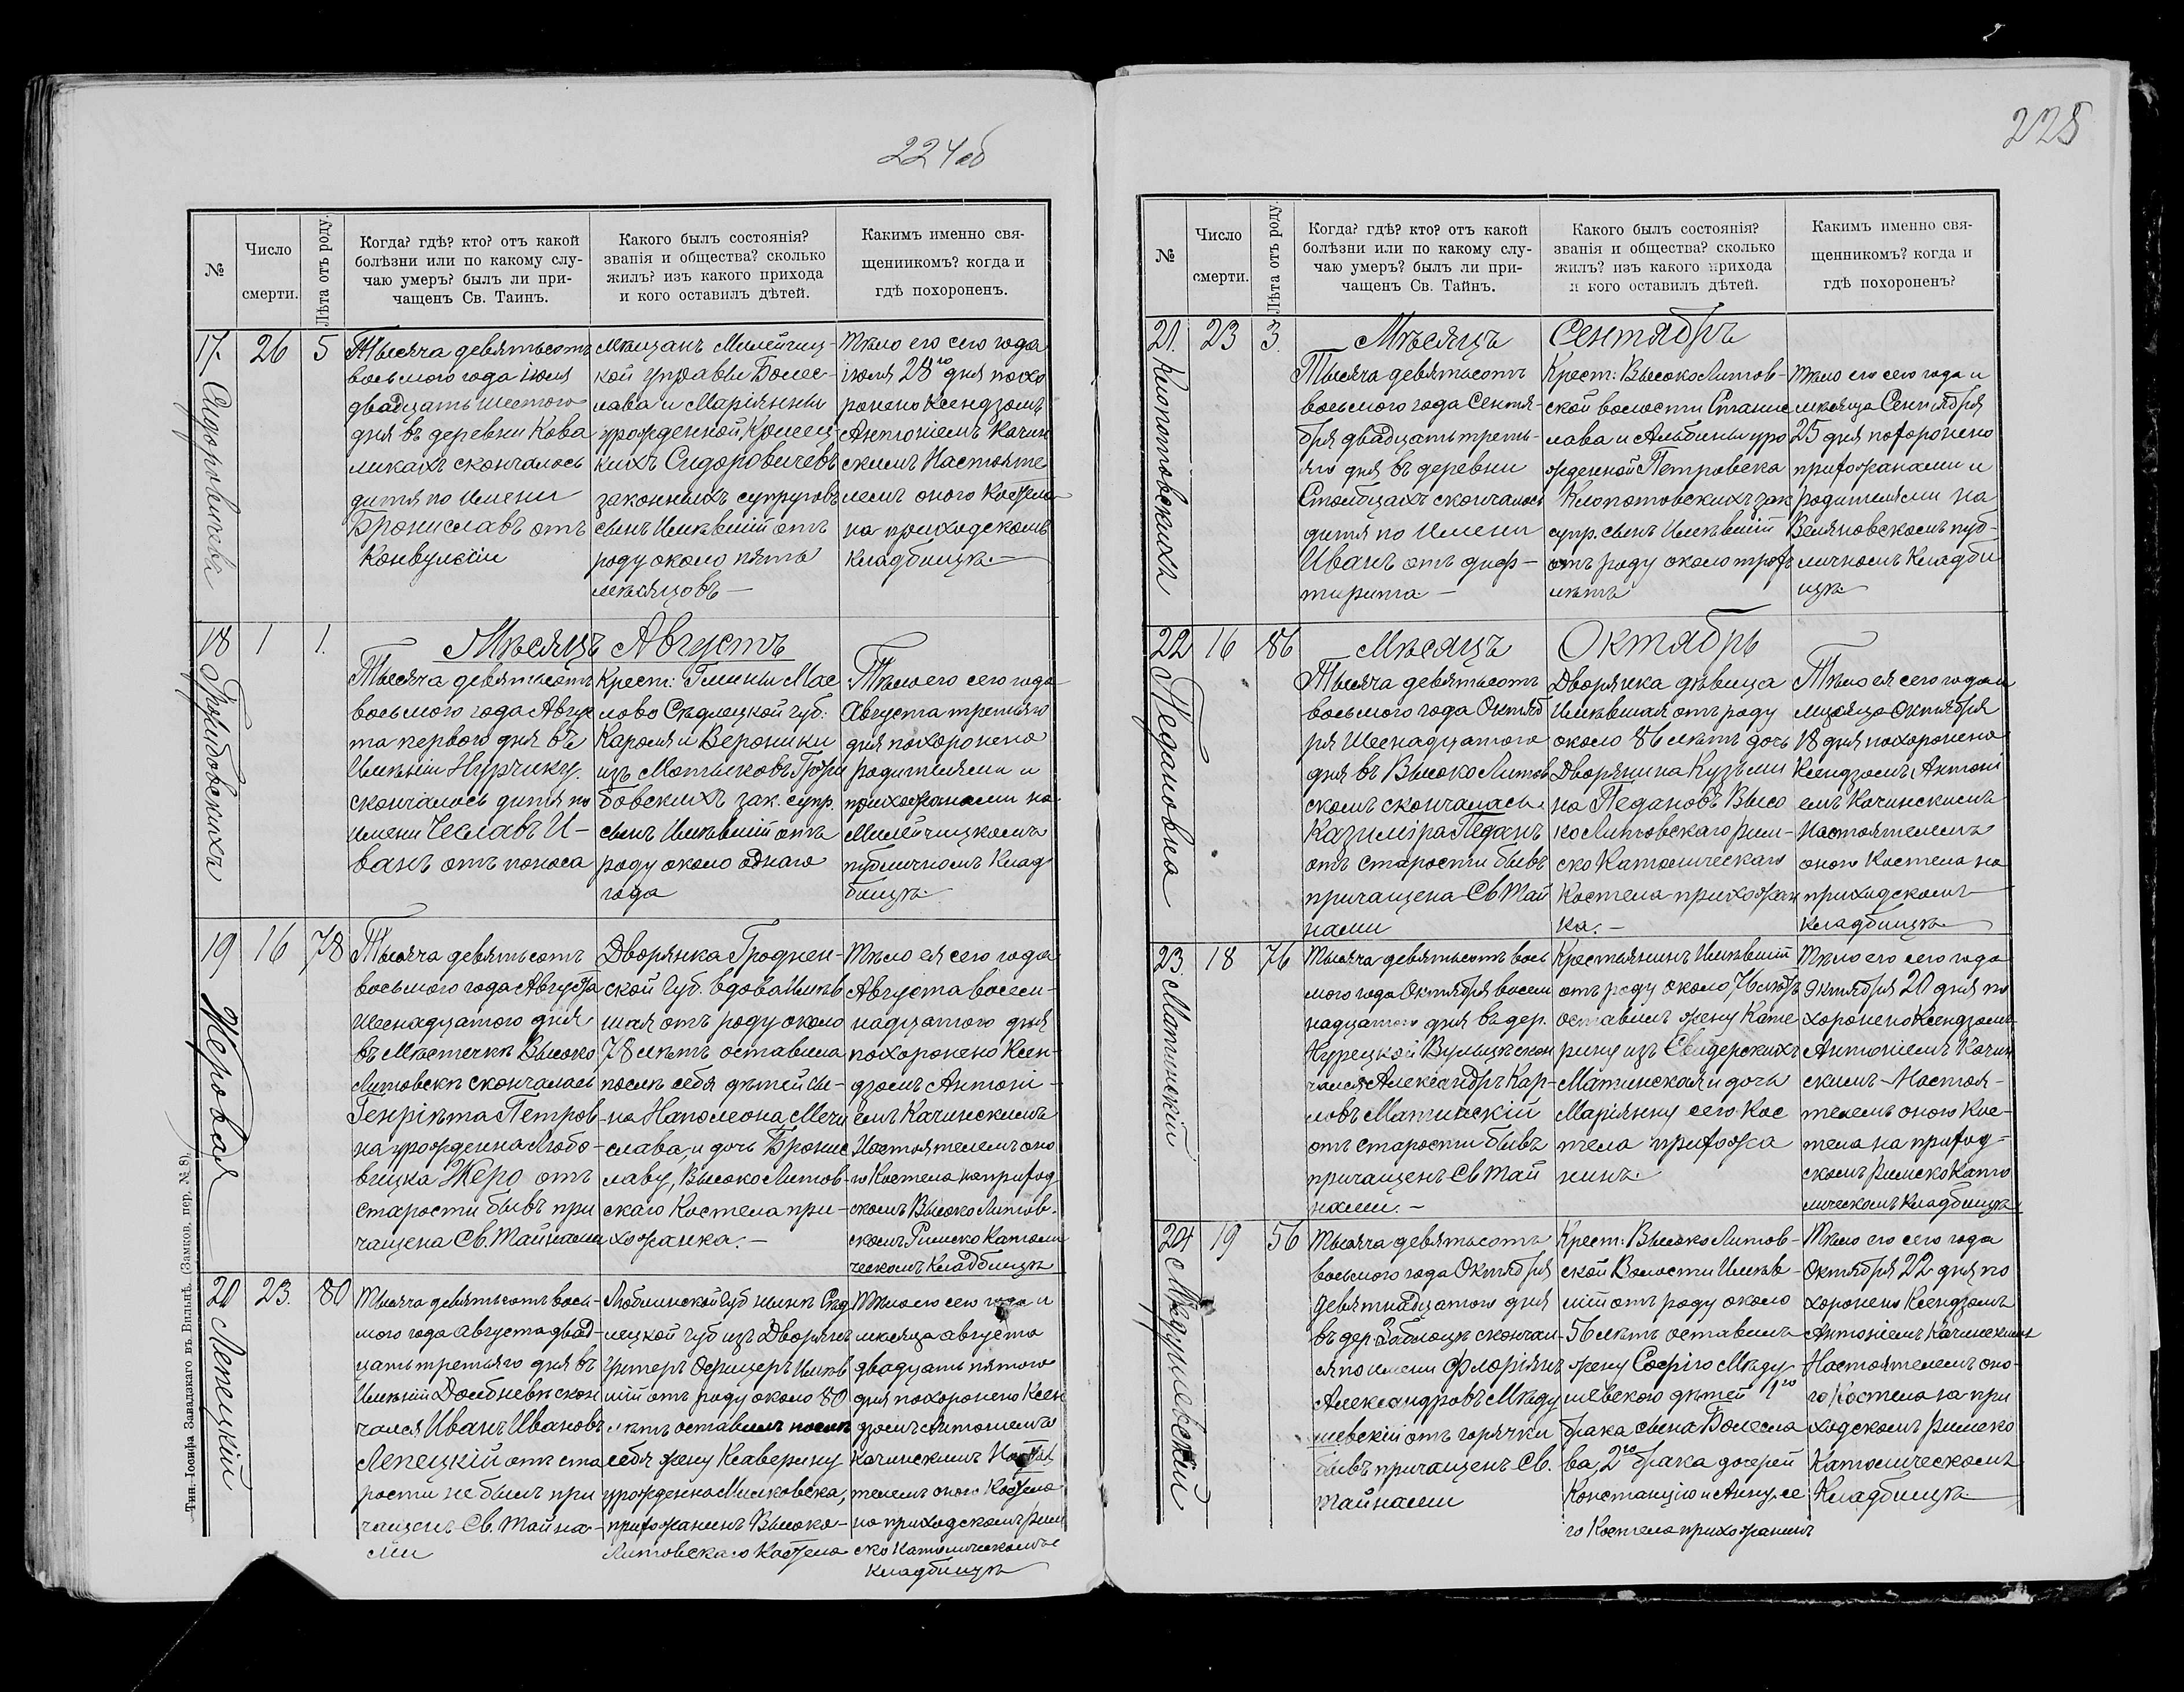 224 об
№
Число
смерти.
Лѣта отъ роду.
Когда? гдѣ? кто? отъ какой
болѣзни или по какому слу-
чаю умеръ? былъ ли при-
чащенъ Св. Таинъ.
Какого былъ состоянія?
званія и общества? сколько
жилъ? изъ какого прихода
и кого оставилъ дѣтей.
Какимъ именно свя-
щенникомъ? когда и
гдѣ похороненъ.
17
Сидоровичъ
26
5
Тысяча девятьсотъ
восьмого года іюля
двадцать шестого
дня въ деревни Кова
ликахъ скончалось
дитя по имени
Брониславъ отъ
Конвульсіи
мѣщанъ Милейчиц-
кой управы Болес-
лава и Маріянны
урожденной
кихъ Сидоровичевъ
законныхъ супруговъ
сынъ имѣвшій отъ
роду около пять
мѣсяцовъ —
Тѣло его сего года
іюля 28го дня похо
ронено Ксендзомъ
Антоніемъ Качин
скимъ Настояте
лемъ оного Костела
на приходскомъ
кладбищѣ. —
Мѣсяцъ Августъ
18
Гробовскихъ
1
1.
Тысяча девятьсотъ
восьмого года Авгус
та первого дня въ
Имѣніи Нурчику.
скончалось дитя по
имени Чеславъ И-
ванъ отъ поноса
Крест: Гмины Мас
лово Сѣдлецкой губ:
Кароля и Вероники
изъ Мотыковъ
бовскихъ зак. супр.
сынъ имѣвшій отъ
роду около одного
года
Тѣло его сего года
Августа третьяго
дня похоронено
родителями и
прихожанами на
Милейчицкомъ
публичномъ Клад
бищѣ.
19
Жеровая
16
78
Тысяча девятьсотъ
восьмого года Августа
Шеснадцатого дня
въ Мѣстечкѣ Высоко
Литовскѣ скончалась
Генріета Петров-
на урожденна Любо-
вицка Жеро отъ
старости бывъ при
чащена Св. Тайнами
Дворянка Гроднен-
ской Губ. вдова имѣв
шая отъ роду около
78 лѣтъ оставила
послѣ себя дѣтей сы-
на Наполеона, Мечи
слава, и дочь Бронис
лаву, Высоко Литов-
скаго Костела при-
хожанка. —
Тѣло ея сего года
Августа восем-
надцатого дня
похоронено Ксен-
дзомъ Антоні-
емъ Качинскимъ
Настоятелемъ оно
го Костела на приход
скомъ Высоко Литов-
скомъ Римско Католи
ческомъ Кладбищѣ
20
Лепецкій
23.
80
Тысяча девятьсотъ вось-
мого года августа двад-
цать третьяго дня въ
Имѣніи Долбневѣ скон
чался Иванъ Ивановъ
Лепецкій отъ ста
рости не былъ при
чащенъ Св. Тайна-
ми
Люблинской Губ нынѣ Сѣд
лецкой губ изъ Дворянъ
Унтеръ Офицеръ имѣв
шій отъ роду около 80
лѣтъ оставилъ послѣ
себя жену Ксаверину
урожденна Милковска,
прихожанинъ Высоко-
Литовскаго Костела
Тѣло его сего года и
мѣсяца августа
двадцать пятого
дня похоронено Ксен
дзомъ Антоніемъ
Качинскимъ Настоя
телемъ оного Костела
на приходскомъ рим
ско католическомъ
кладбищѣ
Тип. Іосифа Завадзкаго въ Вильнѣ. (Замков. пер. № 8).
225
№
Число
смерти.
Лѣта отъ роду.
Когда? гдѣ? кто? отъ какой
болѣзни или по какому слу-
чаю умеръ? былъ ли при-
чащенъ Св. Тайнъ.
Какого былъ состоянія?
званія и общества? сколько
жилъ? изъ какого прихода
и кого оставилъ дѣтей.
Какимъ именно свя-
щенникомъ? когда и
гдѣ похороненъ?
Мѣсяцъ Сентябрь
21.
Клопотовскихъ
23
3.
Тысяча девятьсотъ
восьмого года Сентя-
бря двадцать треть-
яго дня въ деревни
Столбцахъ скончалось
дитя по имени
Иванъ отъ диф-
тирита —
Крест: Высоко Литов-
ской волости Станис
лава и Альбины уро
жденной Петровска
Клопотовскихъ зак
супр. сынъ имѣвшій
отъ роду около трохъ
лѣтъ
Тѣло его сего года и
мѣсяца Сентября
25 дня похоронено
прихожанами и
родителями на
Веляновскомъ пуб-
личномъ Кладби
щѣ
Мѣсяцъ Октябрь
22
Педановна
16
86
Тысяча девятьсотъ
восьмого года Октяб
ря Шеснадцатого
дня въ Высоко Литов
скомъ скончалась
Казиміра Педанъ
отъ старости бывъ
причащена Св Тай
нами
Дворянка дѣвица
имѣвшая отъ роду
около 86 лѣтъ дочь
Дворянина Кузьми
на Педановъ Высо
ко Литовскаго рим-
ско Католическаго
Костела прихожан
ка. —
Тѣло ея сего года и
мѣсяца Октября
18 дня похоронено
Ксендзомъ Антоні
емъ Качинскимъ
Настоятелемъ
оного Костела на
приходскомъ
Кладбищѣ
23.
Матинскій
18
76
Тысяча девятьсотъ вось
мого года Октября восем
надцатого дня въ дер.
Курецкой Вульцѣ скон
чался Александръ Кар-
ловъ Матинскій
отъ старости бывъ
причащенъ Св Тай
нами. —
Крестьянинъ имѣвшій
отъ роду около 76 лѣтъ
оставилъ жену Кате
рину изъ Свидерскихъ
Матинская и дочь
Маріянну сего Кос
тела прихожа
нинъ
Тѣло его сего года
Октября 20 дня по
хоронено Ксендзомъ
Антоніемъ Качин
скимъ Настоя-
телемъ оного Кос-
тела на приход-
скомъ Римско Като
лическомъ Кладбищѣ
24
19
56
Тысяча девятьсотъ
восьмого года Октября
девятнадцатого дня
въ дер. Заблоцѣ скончал-
ся по имени Флоріянъ
Александровъ Мѣду
шевскій отъ горячки
бывъ причащенъ Св.
Тайнами
Крест: Высоко Литов-
ской Волости имѣв-
шій отъ роду около
56 лѣтъ оставилъ
жену Софію Мѣду
шевского дѣтей 1го
брака сына Болесла
ва, 2го брака дочерей
Констанцію и Анну, се
го Костела прихожанинъ
Тѣло его сего года
Октября 22 дня по
хоронено Ксендзомъ
Антоніемъ Качинскимъ
Настоятелемъ оно-
го Костела на при
ходскомъ римско
Католическомъ
Кладбищѣ.